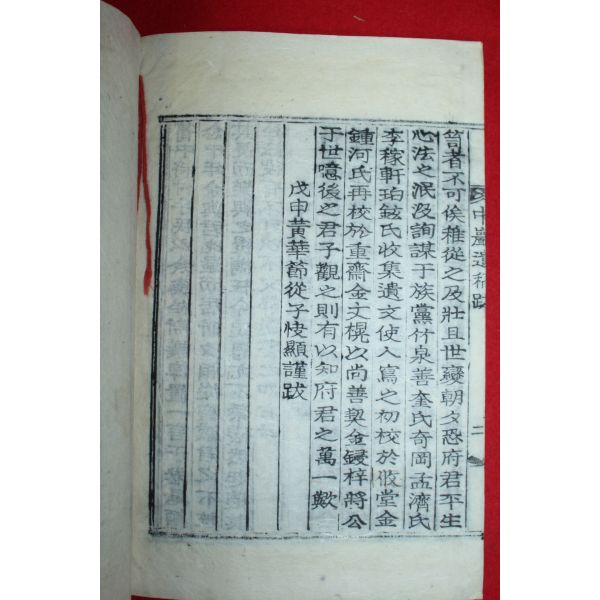 中巖遺稿跋
二
筍者不可俟稚從之及壯且世變朝夕恐府君平生
心法之泯沒詢謀于族黨竹泉善奎氏奇岡孟濟氏
李稼軒珀鉉氏收集遺文使人寫之初校於攸堂金
鍾河氏再校於重齋金文榥以尚善契金鋟梓將公
于世噫後之君子觀之則有以知府君之萬一歟
戊申黃華節從子快顯謹跋